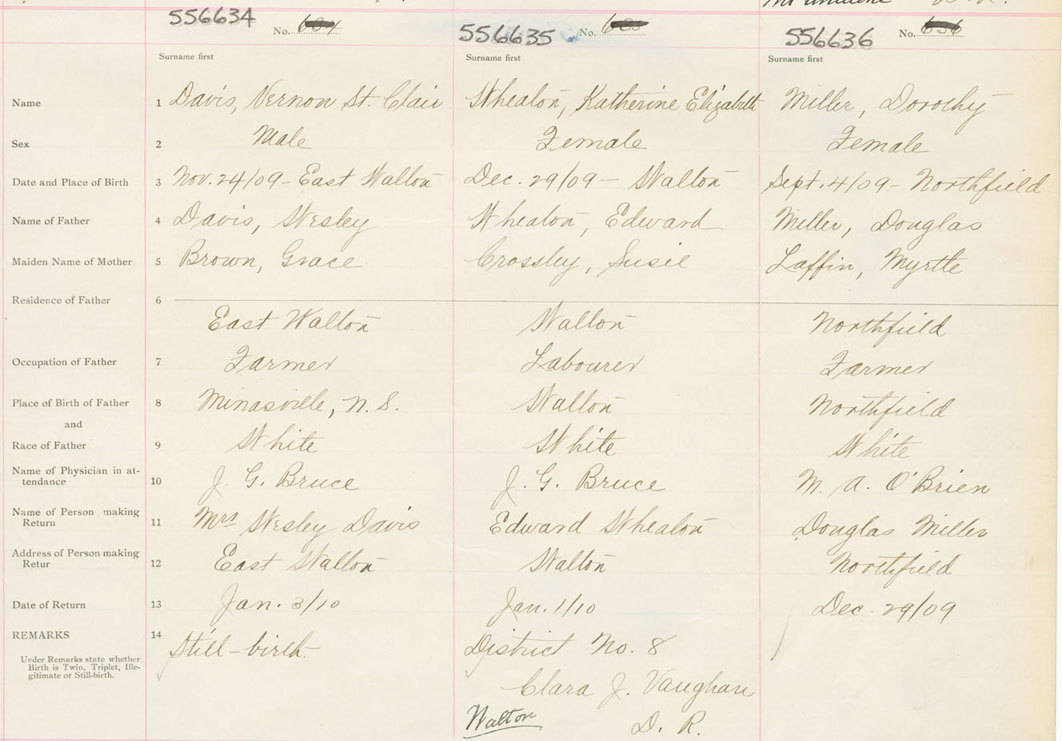 556634 No. 556635 No. 556636 No.
Surname first Surname first Surname first
Name 1 Davis, Vernon St. Clair Whealon, Katherine Elizabeth Miller, Dorothy
Sex 2 Male Female Female
Date and Place of Birth 3 Nov. 24/09 - East Walton Dec. 29/09 - Walton Sept. 4/09 - Northfield
Name of Father 4 Davis, Wesley Whealon, Edward Miller, Douglas
Maiden Name of Mother 5 Brown, Grace Crossley, Susie Laffin, Myrtle
Residence of Father 6
East Walton Walton Northfield
Occupation of Father 7 Farmer Labourer Farmer
Place of Birth of Father 8 Minasville, N. S. Walton Northfield
and
Race of Father 9 White White White
Name of Physician in at-
tendance 10 J. G. Bruce J. G. Bruce M. A. O'Brien
Name of Person making
Return 11 Mrs Wesley Davis Edward Whealon Douglas Miller
Address of Person making
Retur 12 East Walton Walton Northfield
Date of Return 13 Jan. 3/10 Jan. 1/10 Dec. 29/09
REMARKS 14 Still-birth. District No. 8
Under Remarks state whether
Birth is Twin, Triplet, Ille-
gitimate or Still-birth.
Clara J. Vaughan
Walton D. R.